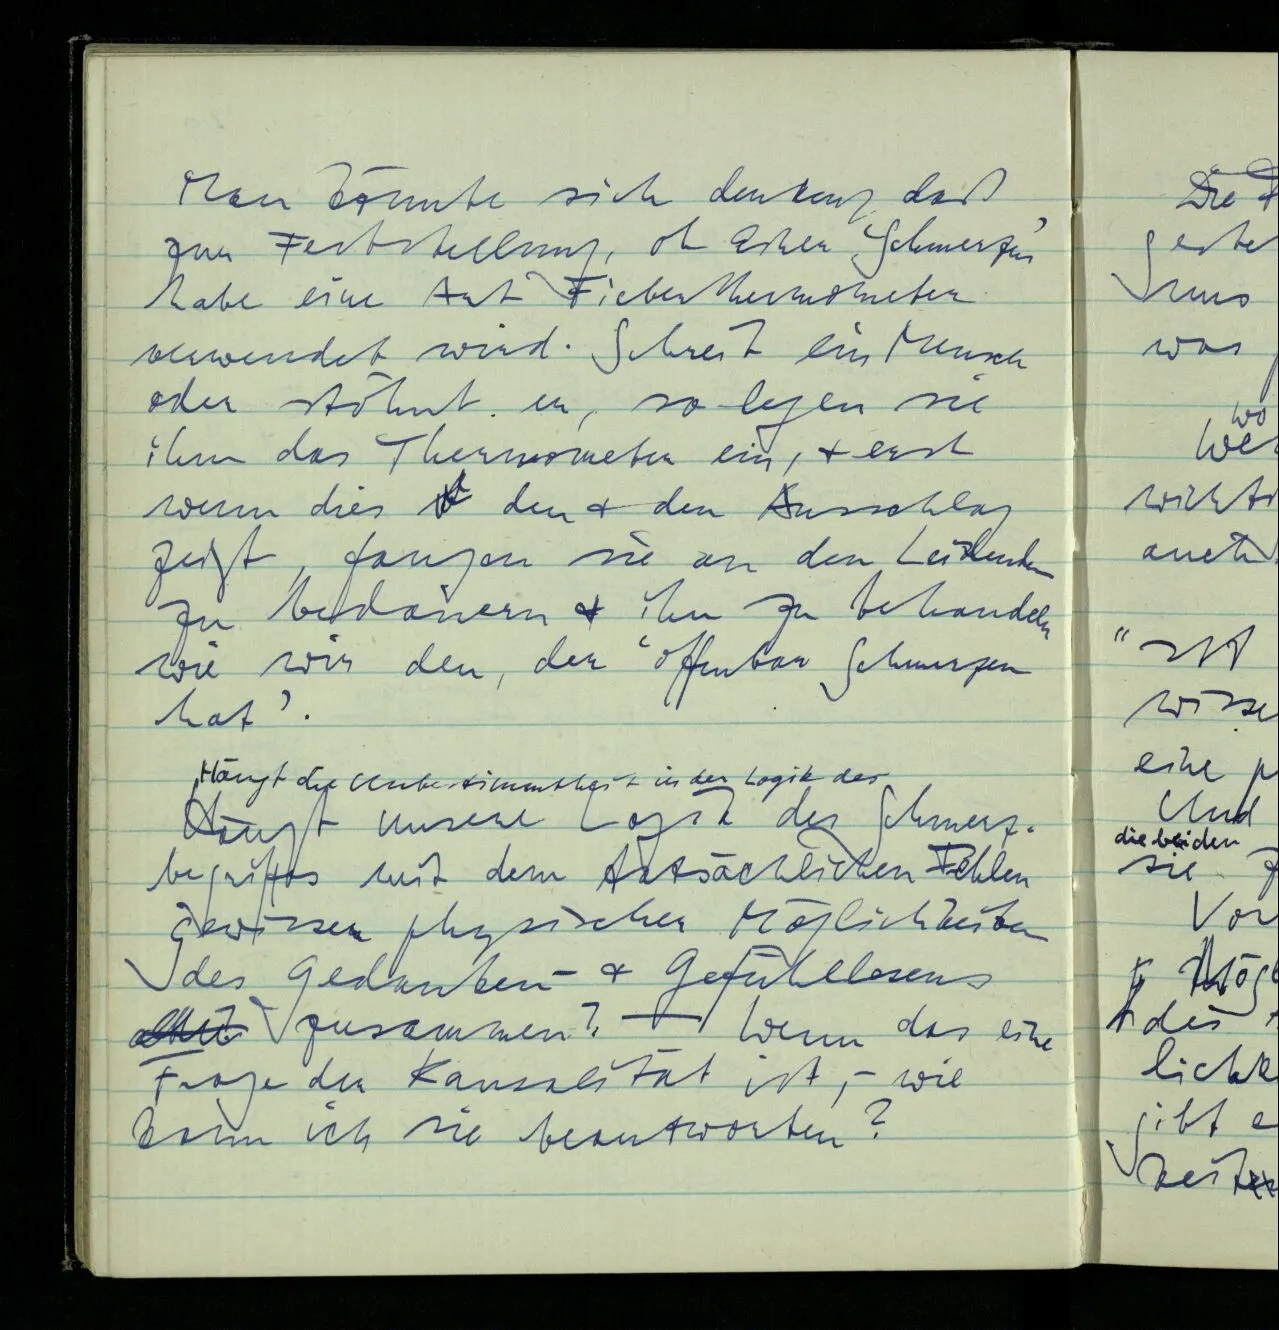 Man könnte sich denken, daß
zur Feststellung, ob Einer Schmerzen
habe eine Art Fieberthermometer
verwendet wird. Schreit ein Mensch
oder stöhnt er, so legen sie
ihm das Thermometer ein, & erst
wenn dies den & den Ausschlag
zeigt, fangen sie an den Leidenden
zu bedauern & ihn zu behandeln
wie wir den, der 'offenbar Schmerzen
hat'.
Hängt die Unbestimmtheit in der Logik des
Hängt unsere Logik des Schmerz-
begriffs mit dem tatsächlichen Fehlen
gewisser physischer Möglichkeiten
des Gedanken- & Gefühllesens
zusammen? — Wenn das eine
Frage der Kausalität ist, – wie
kann ich sie beantworten?
Die
was
wo
"Ist
eine
Und
die beiden
sie
des
gibt